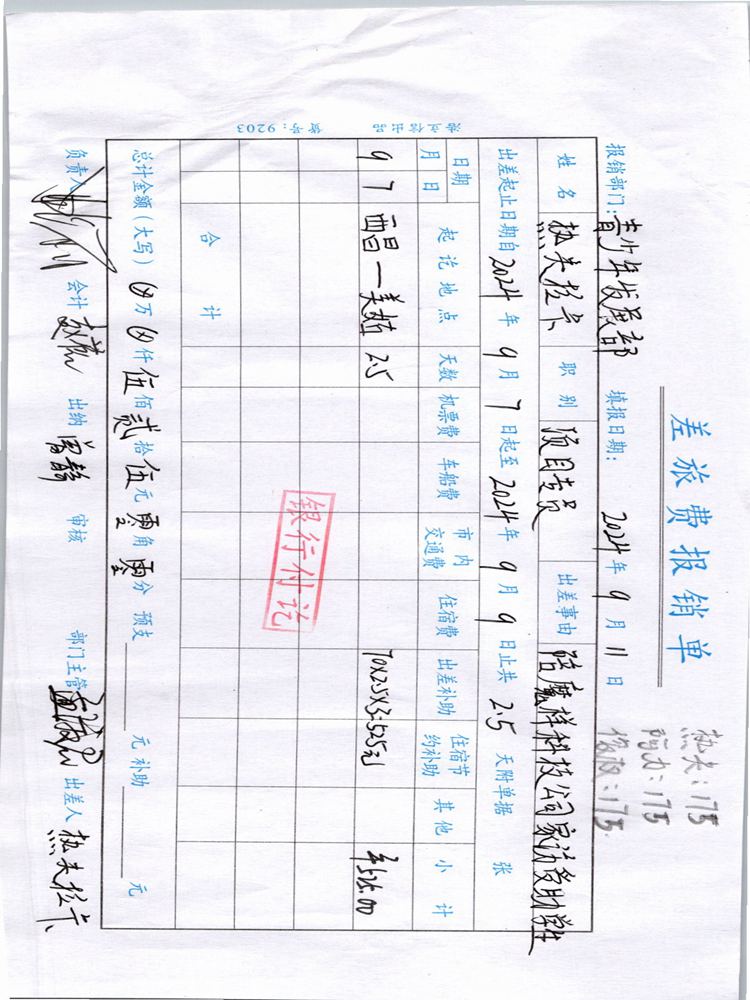 差旅费报销单
热夫:175
阿力:175
俊波:175
报销部门:青少年发展部 填报日期: 2024年9月11日
姓名 热夫拉卡 职别 项目专员 出差事由 陪魔样科技公司家访多助学生
出差起止日期自2024年9月7日起至2024年9月9日止共2.5天附单据 张
日期 起讫地点 天数 机票费 车船费 市内交通费 住宿费 出差补助 住宿节约补助 其他 小计
月 日
9 7 西昌—美姑 2.5 70×2.5×3=525元 ¥525.00
银行付讫
合计
总计金额(大写) 万 仟伍佰贰拾伍元零角零分 预支 元 补助 元
负责人 会计 出纳 曾静 审核 部门主管 出差人 热夫拉卡
货号:9203